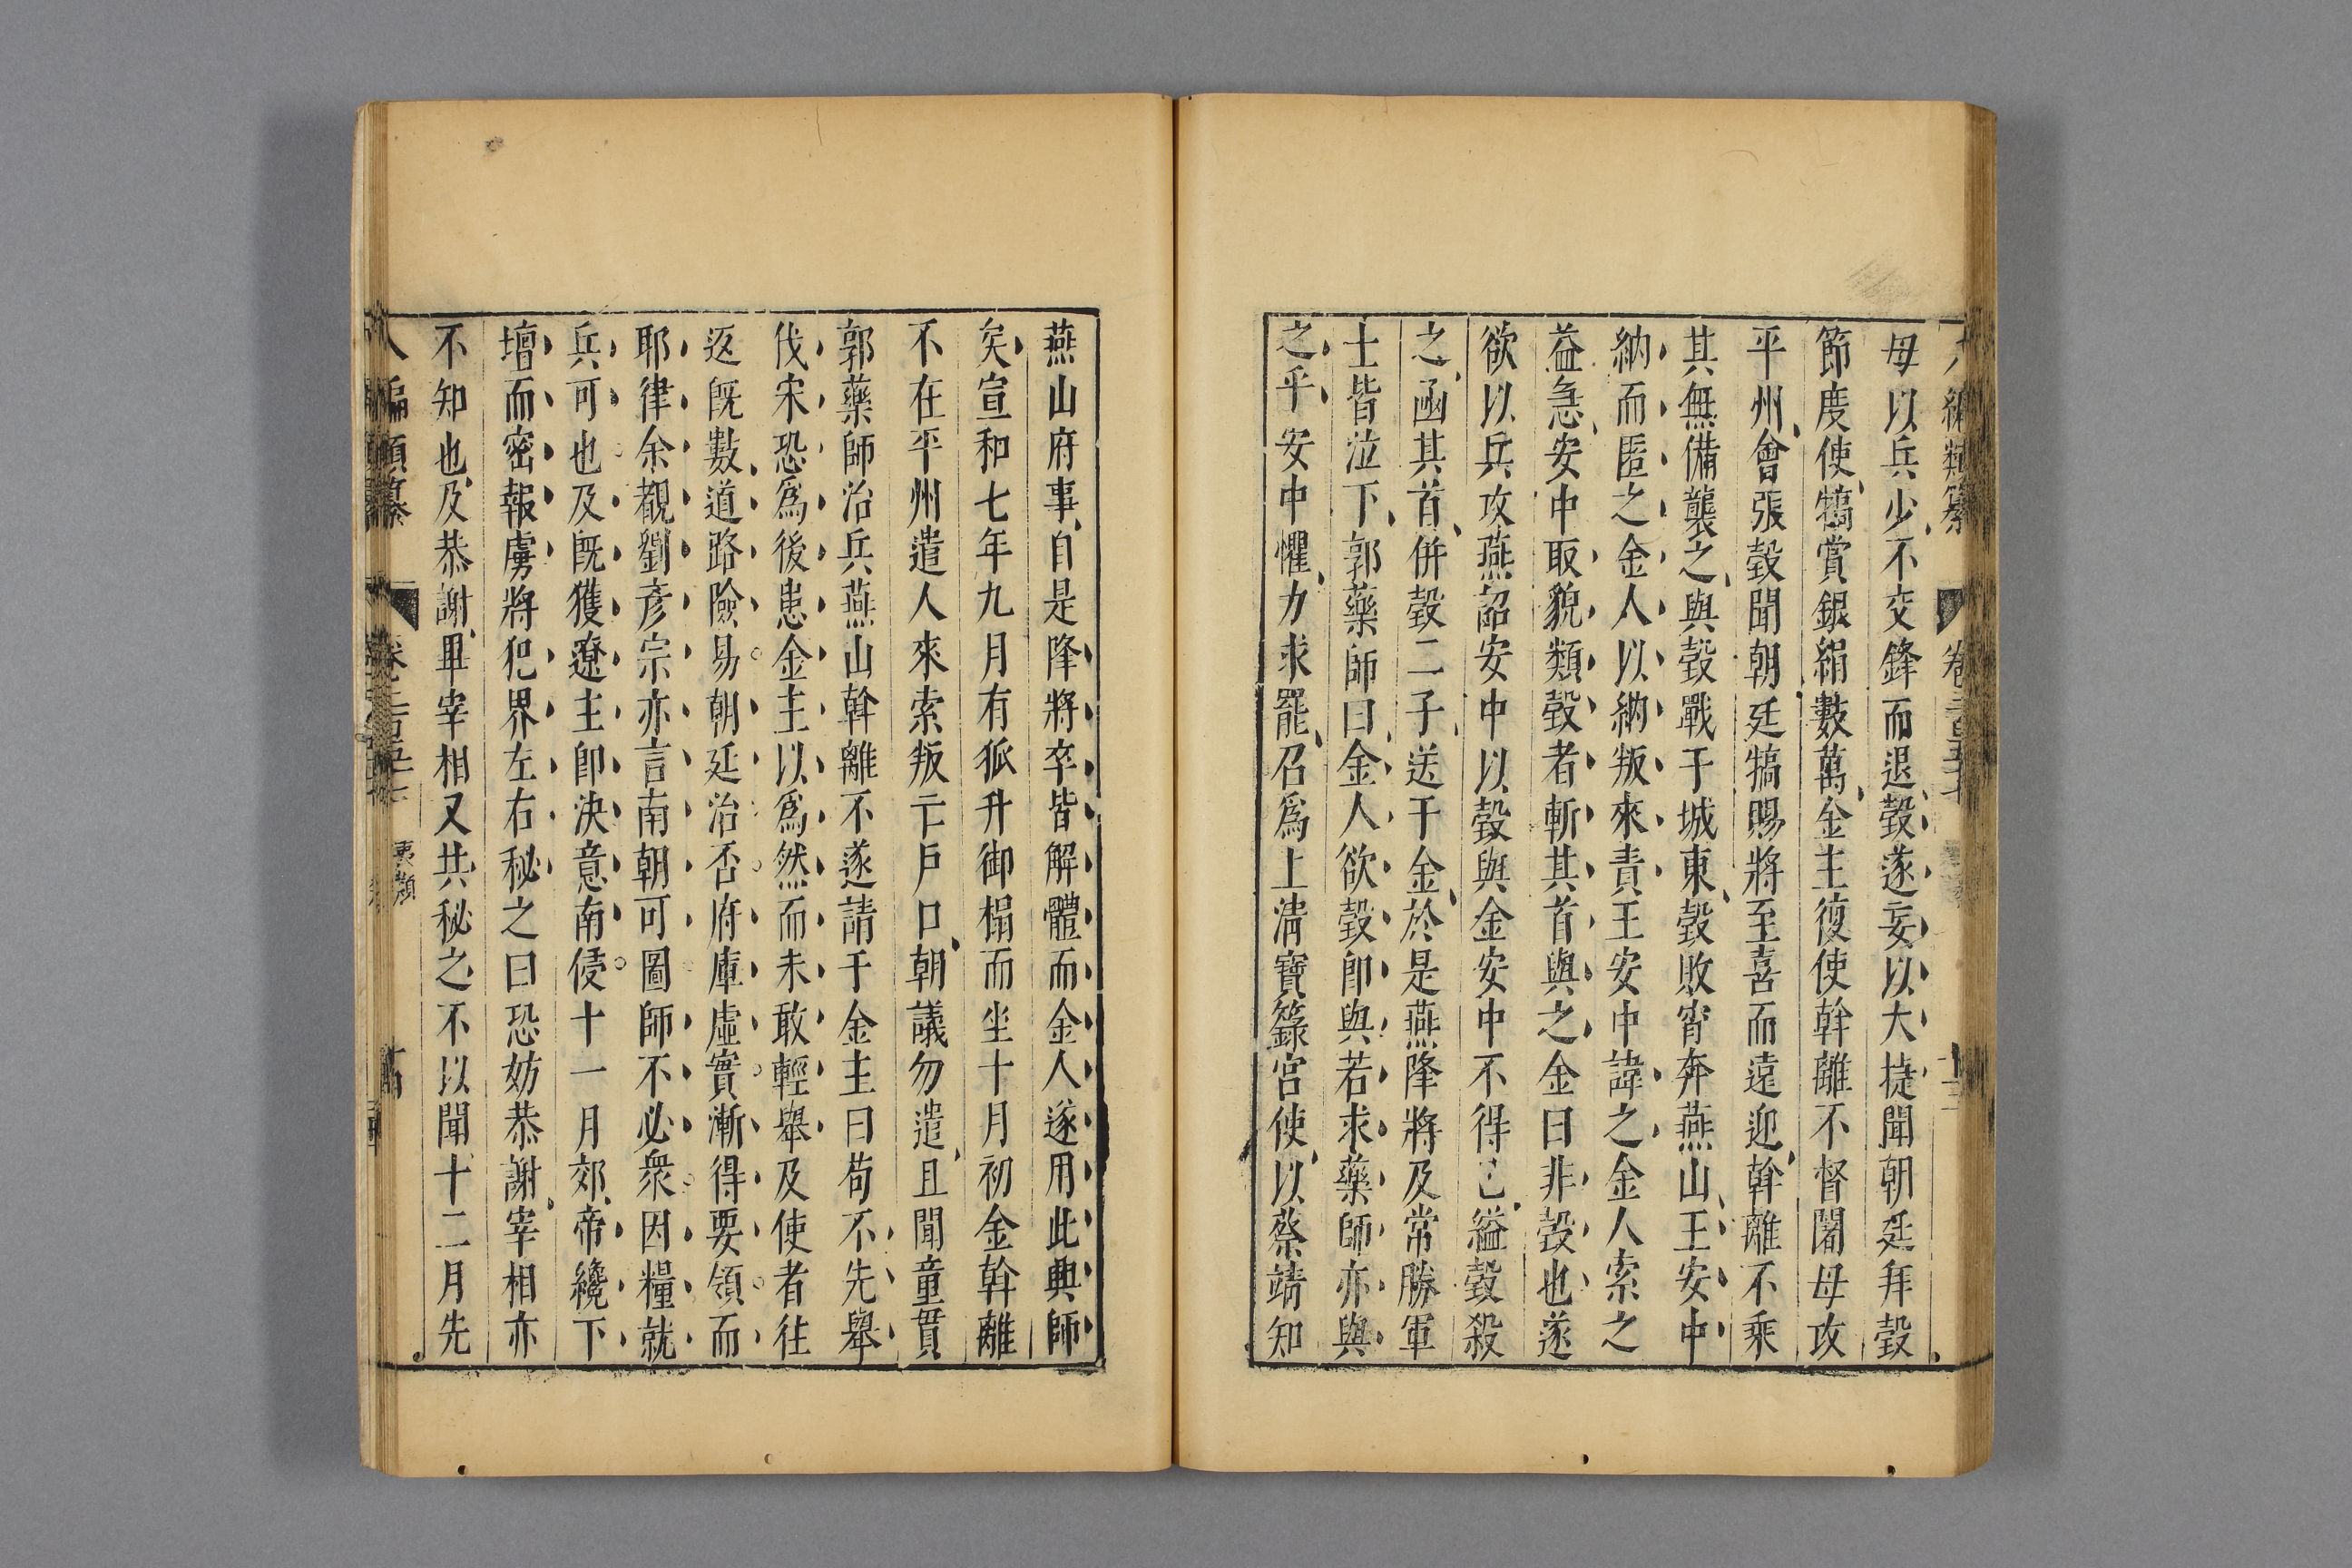 八編類纂 卷二百五十七
母以兵少不交鋒而退瑴遂妄以大捷聞朝廷拜瑴
節度使犒賞銀絹數萬金主復使斡離不督闍母攻
平州會張瑴聞朝廷犒賜將至喜而遠迎斡離不乘
其無備襲之與瑴戰于城東瑴敗宵奔燕山王安中
納而匿之金人以納叛來責王安中諱之金人索之
益急安中取貌類瑴者斬其首與之金曰非瑴也遂
欲以兵攻燕詔安中以瑴與金安中不得已縊瑴殺
之函其首併瑴二子送于金於是燕降將及常勝軍
士皆泣下郭藥師曰金人欲瑴卽與若求藥師亦與
之乎安中懼力求罷召爲上淸寶籙宫使以蔡靖知
燕山府事自是降將卒皆解體而金人遂用此興師
矣宣和七年九月有狐升御榻而坐十月初金斡離
不在平州遣人來索叛亡戶口朝議勿遣且聞童貫
郭藥師治兵燕山斡離不遂請于金主曰苟不先舉
伐宋恐爲後患金主以爲然而未敢輕舉及使者往
返旣數道路險易朝廷治否府庫虛實漸得要領而
耶律余覩劉彥宗亦言南朝可圖師不必衆因糧就
兵可也及旣獲遼主卽決意南侵十一月郊帝纔下
壇而密報虜將犯界左右秘之曰恐妨恭謝宰相亦
不知也及恭謝畢宰相又共秘之不以聞十二月先
八編類纂 卷二百五十七 夷類